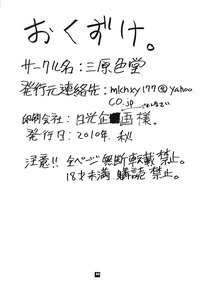 おくずけ。
サークル名：三原色堂
発行元連絡先：mkhxy177@yahoo.
co.jp ごめんなさい
印刷会社：日光企画様。
発行日：2010年、秋
注意!! 全ページ無断転載禁止。
18才未満 購読禁止。